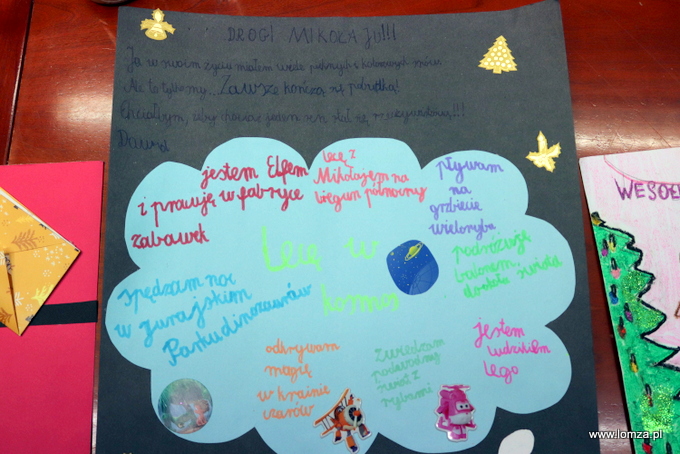 DROGI MIKOŁAJU!!!
Ja w swoim życiu miałem wiele pięknych i kolorowych snów.
Ale to tylko sny... Zawsze kończą się pobudką!
Chciałbym, aby chociaż jeden sen stał się rzeczywistością!!!
Dawid
jestem Elfem
i pracuję w fabryce
zabawek
lecę z
Mikołajem na
biegun północny
pływam
na
grzbiecie
wieloryba
Lecę w
kosmos
podróżuję
balonem
dookoła świata
spędzam noc
w jurajskim
Parku dinozaurów
odkrywam
magię
w krainie
czarów
Zwiedzam
podwodny
świat z
rybami
jestem
ludzikiem
lego
WESOŁ
www.lomza.pl